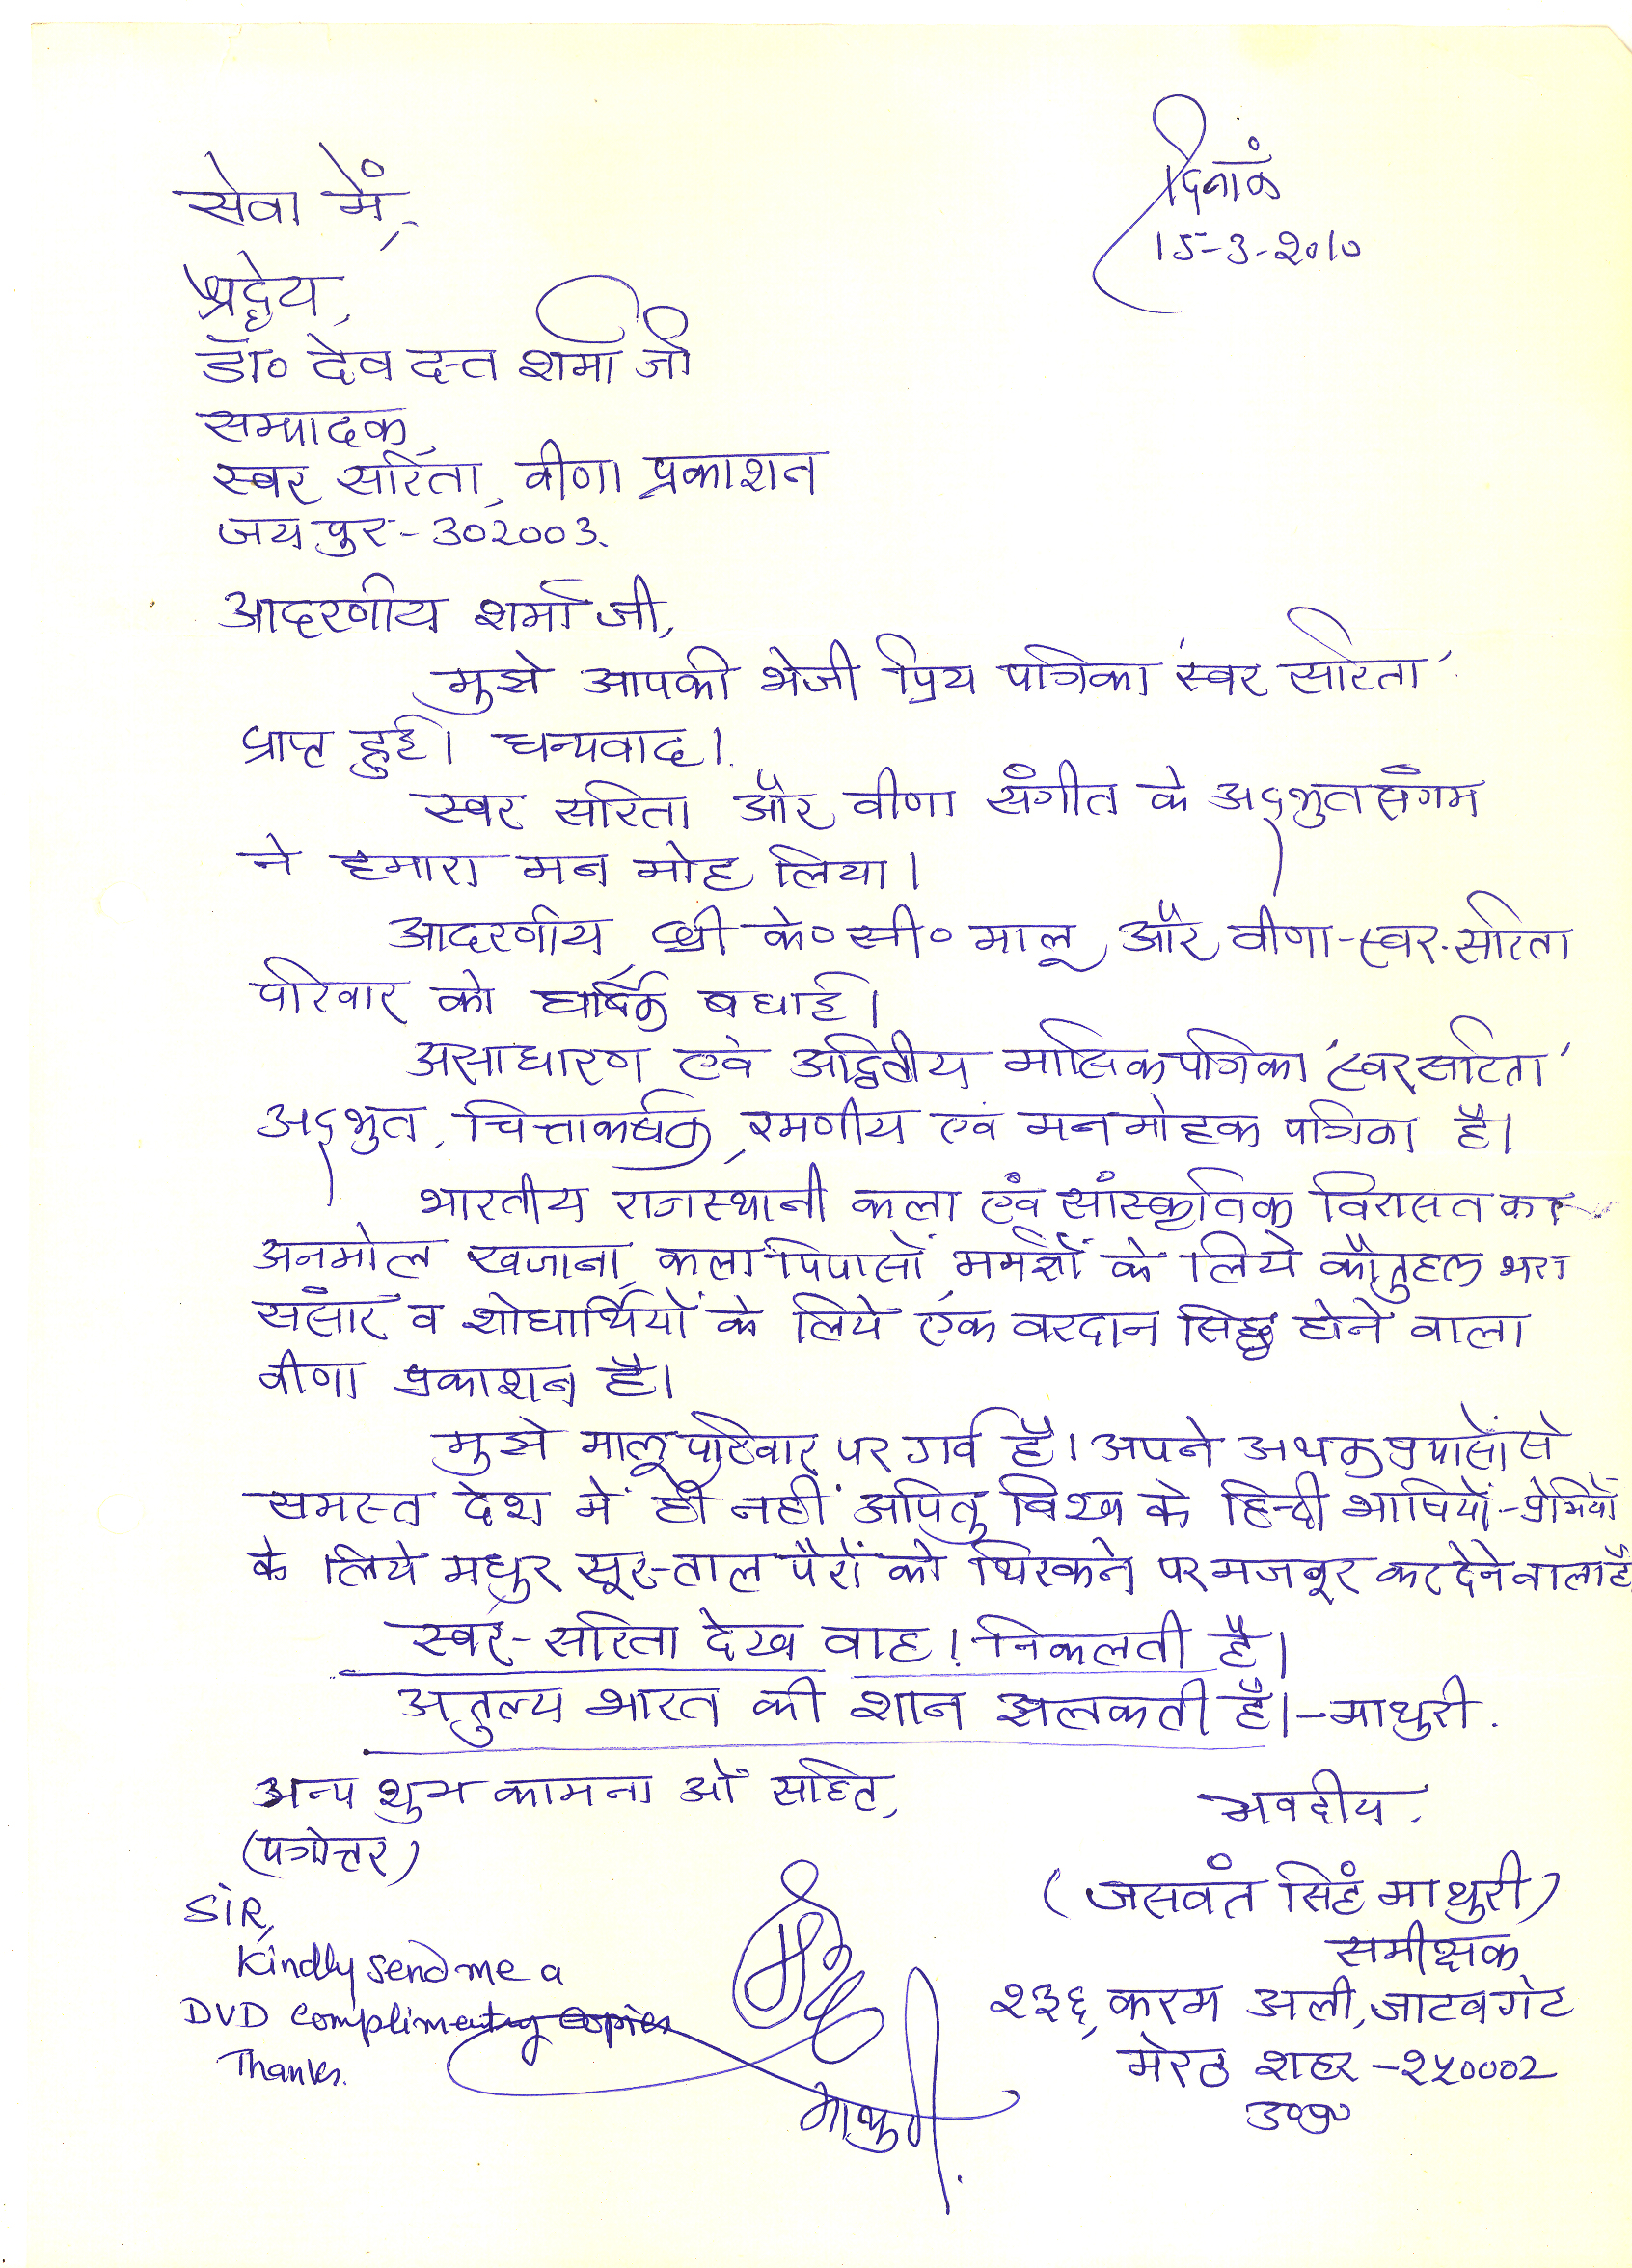 दिनांक
15-3-2010
सेवा में,
श्रद्धेय,
डॉ० देव दत्त शर्मा जी
सम्पादक,
स्वर सरिता, वीणा प्रकाशन
जयपुर-302003.
आदरणीय शर्मा जी,
मुझे आपकी भेजी प्रिय पत्रिका 'स्वर सरिता'
प्राप्त हुई। धन्यवाद।
स्वर सरिता और वीणा संगीत के अद्भुत संगम
ने हमारा मन मोह लिया।
आदरणीय श्री के०सी० मालू और वीणा-स्वर-सरिता
परिवार को हार्दिक बधाई।
असाधारण एवं अद्वितीय मासिक पत्रिका 'स्वर सरिता'
अद्भुत, चित्ताकर्षक, रमणीय एवं मनमोहक पत्रिका है।
भारतीय राजस्थानी कला एवं सांस्कृतिक विरासत का
अनमोल खजाना, कला पिपासों, मर्मज्ञों के लिये कौतुहल भरा
संसार व शोधार्थियों के लिये एक वरदान सिद्ध होने वाला
वीणा प्रकाशन है।
मुझे मालू परिवार पर गर्व है। अपने अथक प्रयासों से
समस्त देश में ही नहीं अपितु विश्व के हिन्दी भाषियों-प्रेमियों
के लिये मधुर सूर-ताल पैरों को थिरकने पर मजबूर कर देने वाला है
स्वर-सरिता देख वाह! निकलती है।
अतुल्य भारत की शान झलकती है।-माथुरी.
अन्य शुभ कामनाओं सहित,
भवदीय.
(पत्रोत्तर)
(जसवंत सिंह माथुरी)
समीक्षक
SIR,
Kindly send me a
DVD Complimentry Copies
Thanks.
२३६, करम अली, जाटवगेट
मेरठ शहर -२५०००2
उ०प्र०
माथुरी